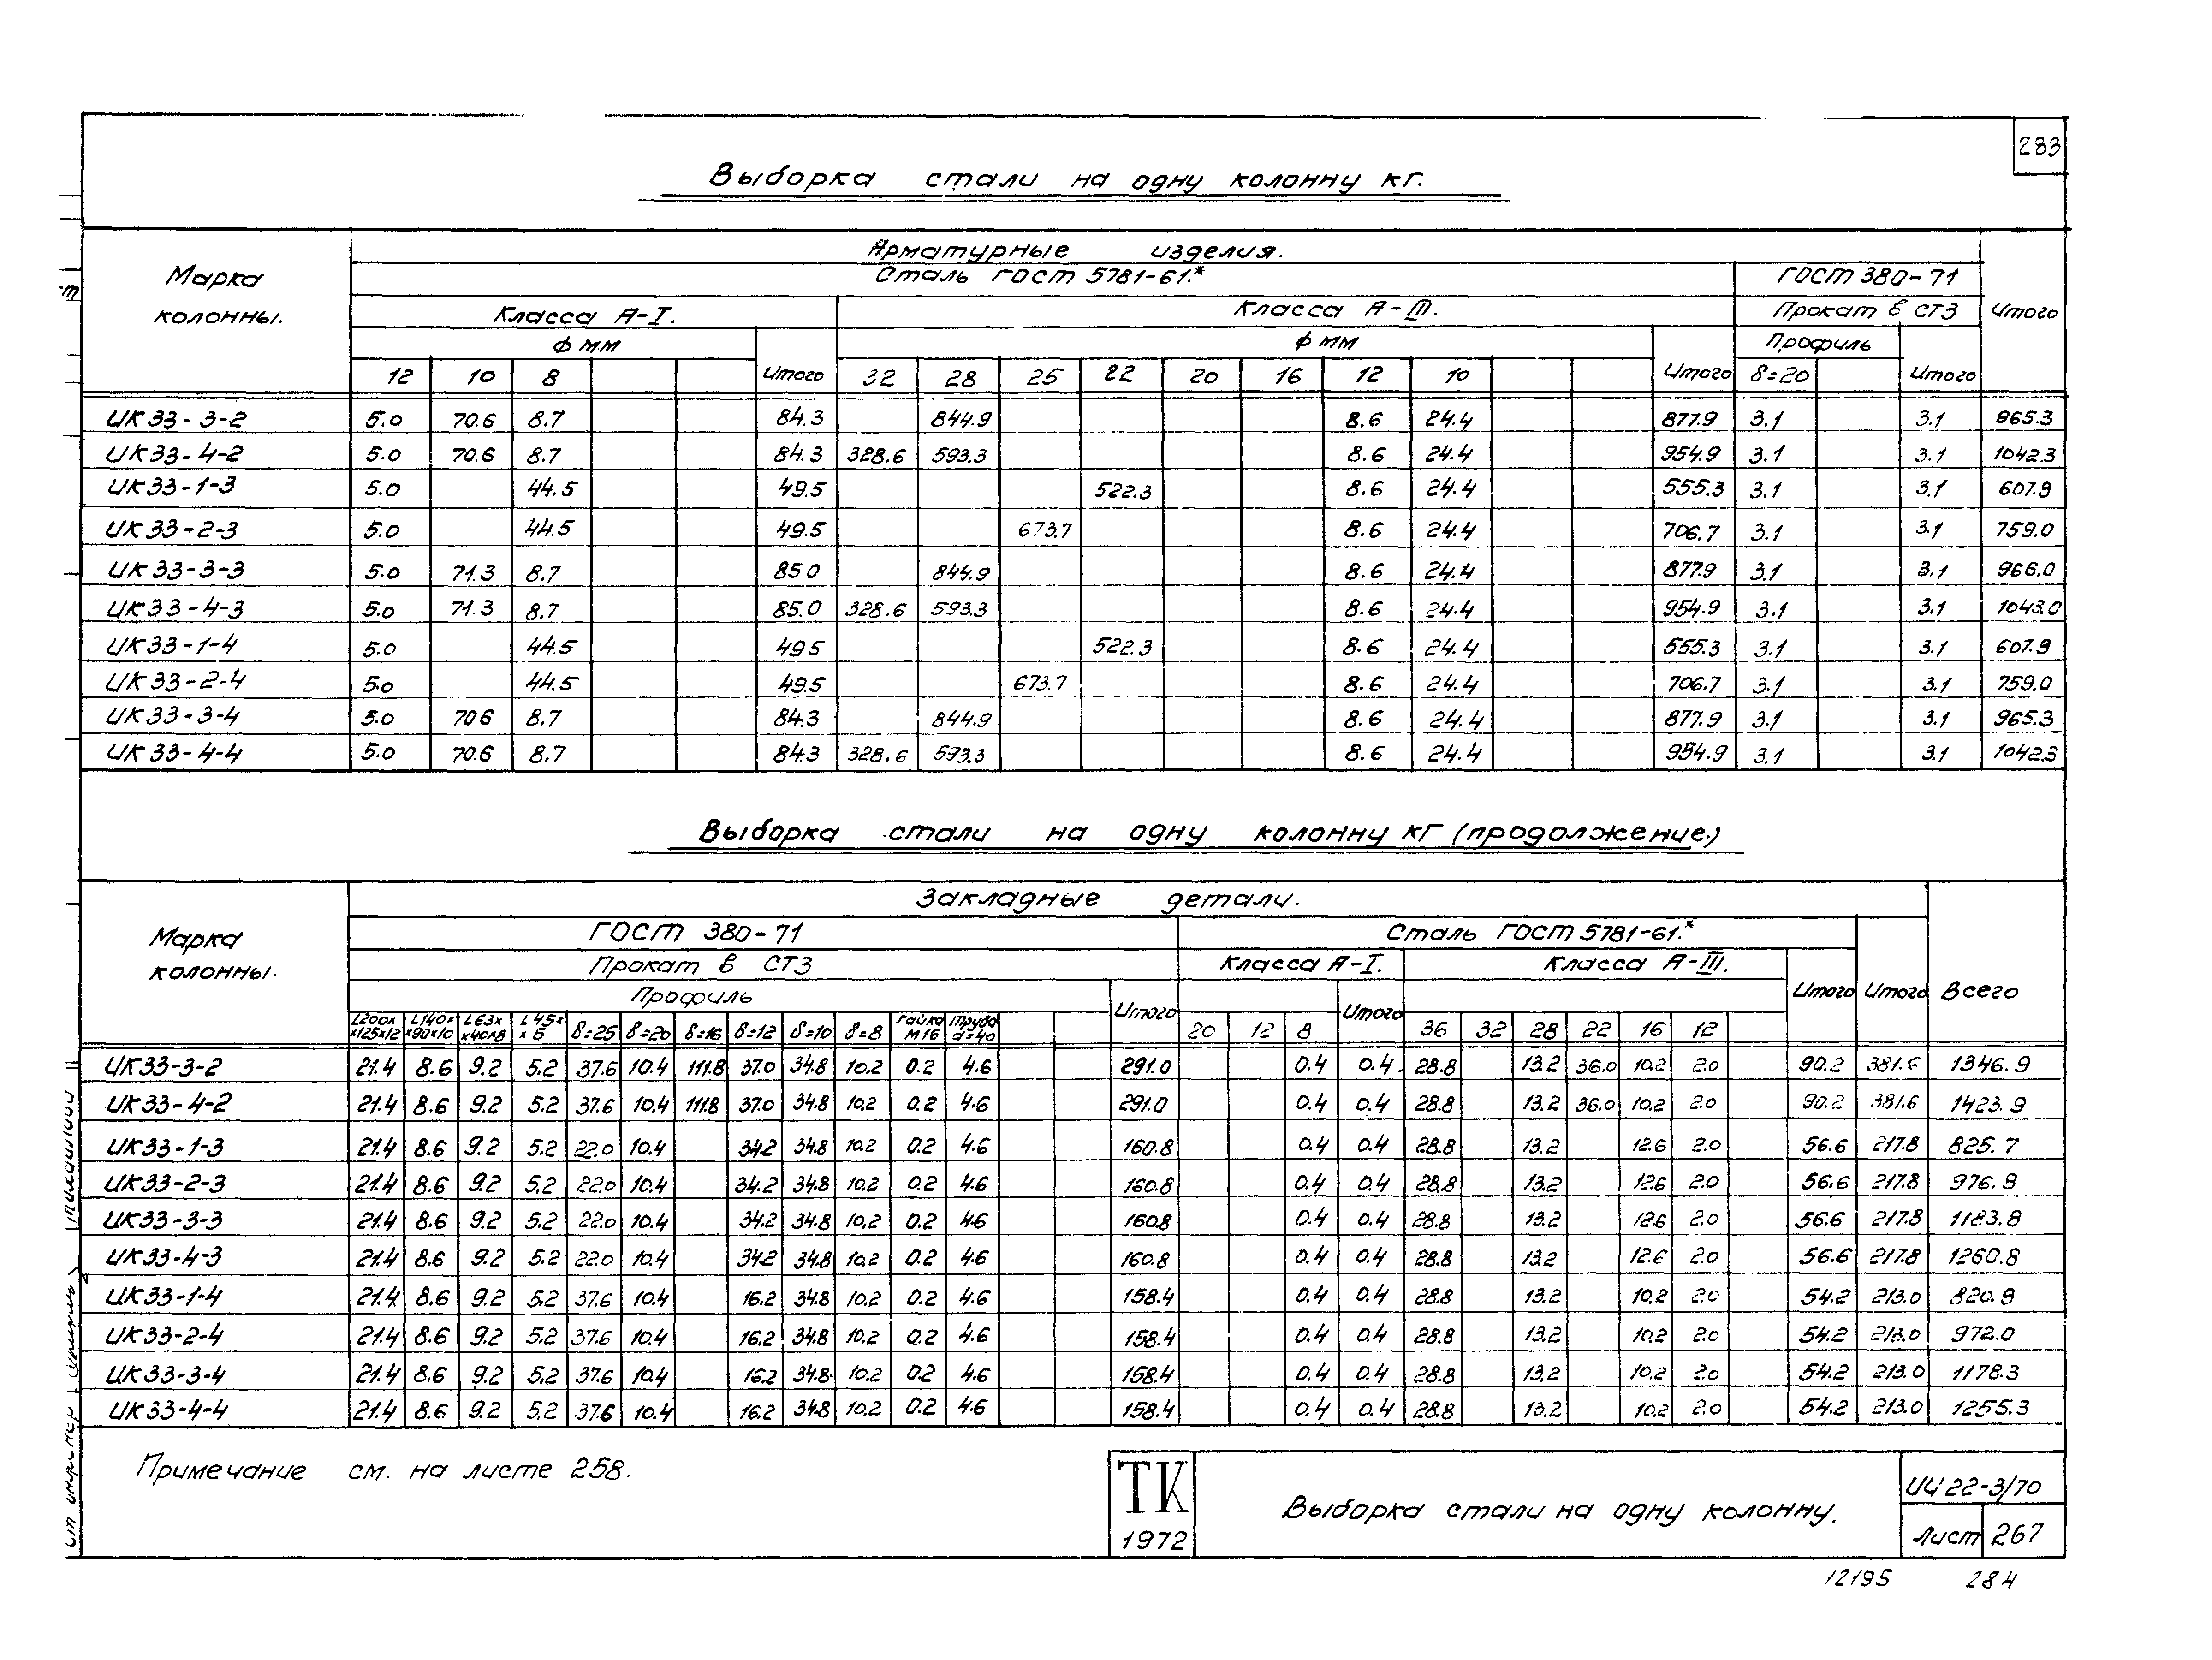 283
Выборка стали на одну колонну кг.
Марка колонны.
Арматурные изделия.
Сталь ГОСТ 5781-61.*
ГОСТ 380-71
Итого
Класса А-I.
Класса А-III.
Прокат в СТ3
ф мм
ф мм
Профиль
12 10 8 Итого 32 28 25 22 20 16 12 10 Итого δ=20 Итого
ИК33-3-2 5.0 70.6 8.7 84.3 844.9 8.6 24.4 877.9 3.1 3.1 965.3
ИК33-4-2 5.0 70.6 8.7 84.3 328.6 593.3 8.6 24.4 954.9 3.1 3.1 1042.3
ИК33-1-3 5.0 44.5 49.5 522.3 8.6 24.4 555.3 3.1 3.1 607.9
ИК33-2-3 5.0 44.5 49.5 673.7 8.6 24.4 706.7 3.1 3.1 759.0
ИК33-3-3 5.0 71.3 8.7 850 844.9 8.6 24.4 877.9 3.1 3.1 966.0
ИК33-4-3 5.0 71.3 8.7 85.0 328.6 593.3 8.6 24.4 954.9 3.1 3.1 1043.0
ИК33-1-4 5.0 44.5 495 522.3 8.6 24.4 555.3 3.1 3.1 607.9
ИК33-2-4 5.0 44.5 49.5 673.7 8.6 24.4 706.7 3.1 3.1 759.0
ИК33-3-4 5.0 706 8.7 84.3 844.9 8.6 24.4 877.9 3.1 3.1 965.3
ИК33-4-4 5.0 70.6 8.7 84.3 328.6 593.3 8.6 24.4 954.9 3.1 3.1 1042.3
Выборка стали на одну колонну кг (продолжение.)
Марка колонны.
Закладные детали.
ГОСТ 380-71
Сталь ГОСТ 5781-61.*
Прокат в СТ3
Класса А-I.
Класса А-III.
Профиль
Итого Итого Итого Итого Всего
L200х х125х12 L140х х90х10 L63х х40х8 L45х х5 δ=25 δ=20 δ=16 δ=12 δ=10 δ=8 гайка М16 труба d=40 20 12 8 36 32 28 22 16 12
ИК33-3-2 21.4 8.6 9.2 5.2 37.6 10.4 111.8 37.0 34.8 10.2 0.2 4.6 291.0 0.4 0.4 28.8 13.2 36.0 10.2 2.0 90.2 381.6 1346.9
ИК33-4-2 21.4 8.6 9.2 5.2 37.6 10.4 111.8 37.0 34.8 10.2 0.2 4.6 291.0 0.4 0.4 28.8 13.2 36.0 10.2 2.0 90.2 381.6 1423.9
ИК33-1-3 21.4 8.6 9.2 5.2 22.0 10.4 34.2 34.8 10.2 0.2 4.6 160.8 0.4 0.4 28.8 13.2 12.6 2.0 56.6 217.8 825.7
ИК33-2-3 21.4 8.6 9.2 5.2 22.0 10.4 34.2 34.8 10.2 0.2 4.6 160.8 0.4 0.4 28.8 13.2 12.6 2.0 56.6 217.8 976.8
ИК33-3-3 21.4 8.6 9.2 5.2 22.0 10.4 34.2 34.8 10.2 0.2 4.6 160.8 0.4 0.4 28.8 13.2 12.6 2.0 56.6 217.8 1183.8
ИК33-4-3 21.4 8.6 9.2 5.2 22.0 10.4 34.2 34.8 10.2 0.2 4.6 160.8 0.4 0.4 28.8 13.2 12.6 2.0 56.6 217.8 1260.8
ИК33-1-4 21.4 8.6 9.2 5.2 37.6 10.4 16.2 34.8 10.2 0.2 4.6 158.4 0.4 0.4 28.8 13.2 10.2 2.0 54.2 213.0 820.9
ИК33-2-4 21.4 8.6 9.2 5.2 37.6 10.4 16.2 34.8 10.2 0.2 4.6 158.4 0.4 0.4 28.8 13.2 10.2 2.0 54.2 213.0 972.0
ИК33-3-4 21.4 8.6 9.2 5.2 37.6 10.4 16.2 34.8 10.2 0.2 4.6 158.4 0.4 0.4 28.8 13.2 10.2 2.0 54.2 213.0 1178.3
ИК33-4-4 21.4 8.6 9.2 5.2 37.6 10.4 16.2 34.8 10.2 0.2 4.6 158.4 0.4 0.4 28.8 13.2 10.2 2.0 54.2 213.0 1255.3
Примечание см. на листе 258.
ТК
1972
Выборка стали на одну колонну.
ИИ22-3/70
Лист 267
12195 284